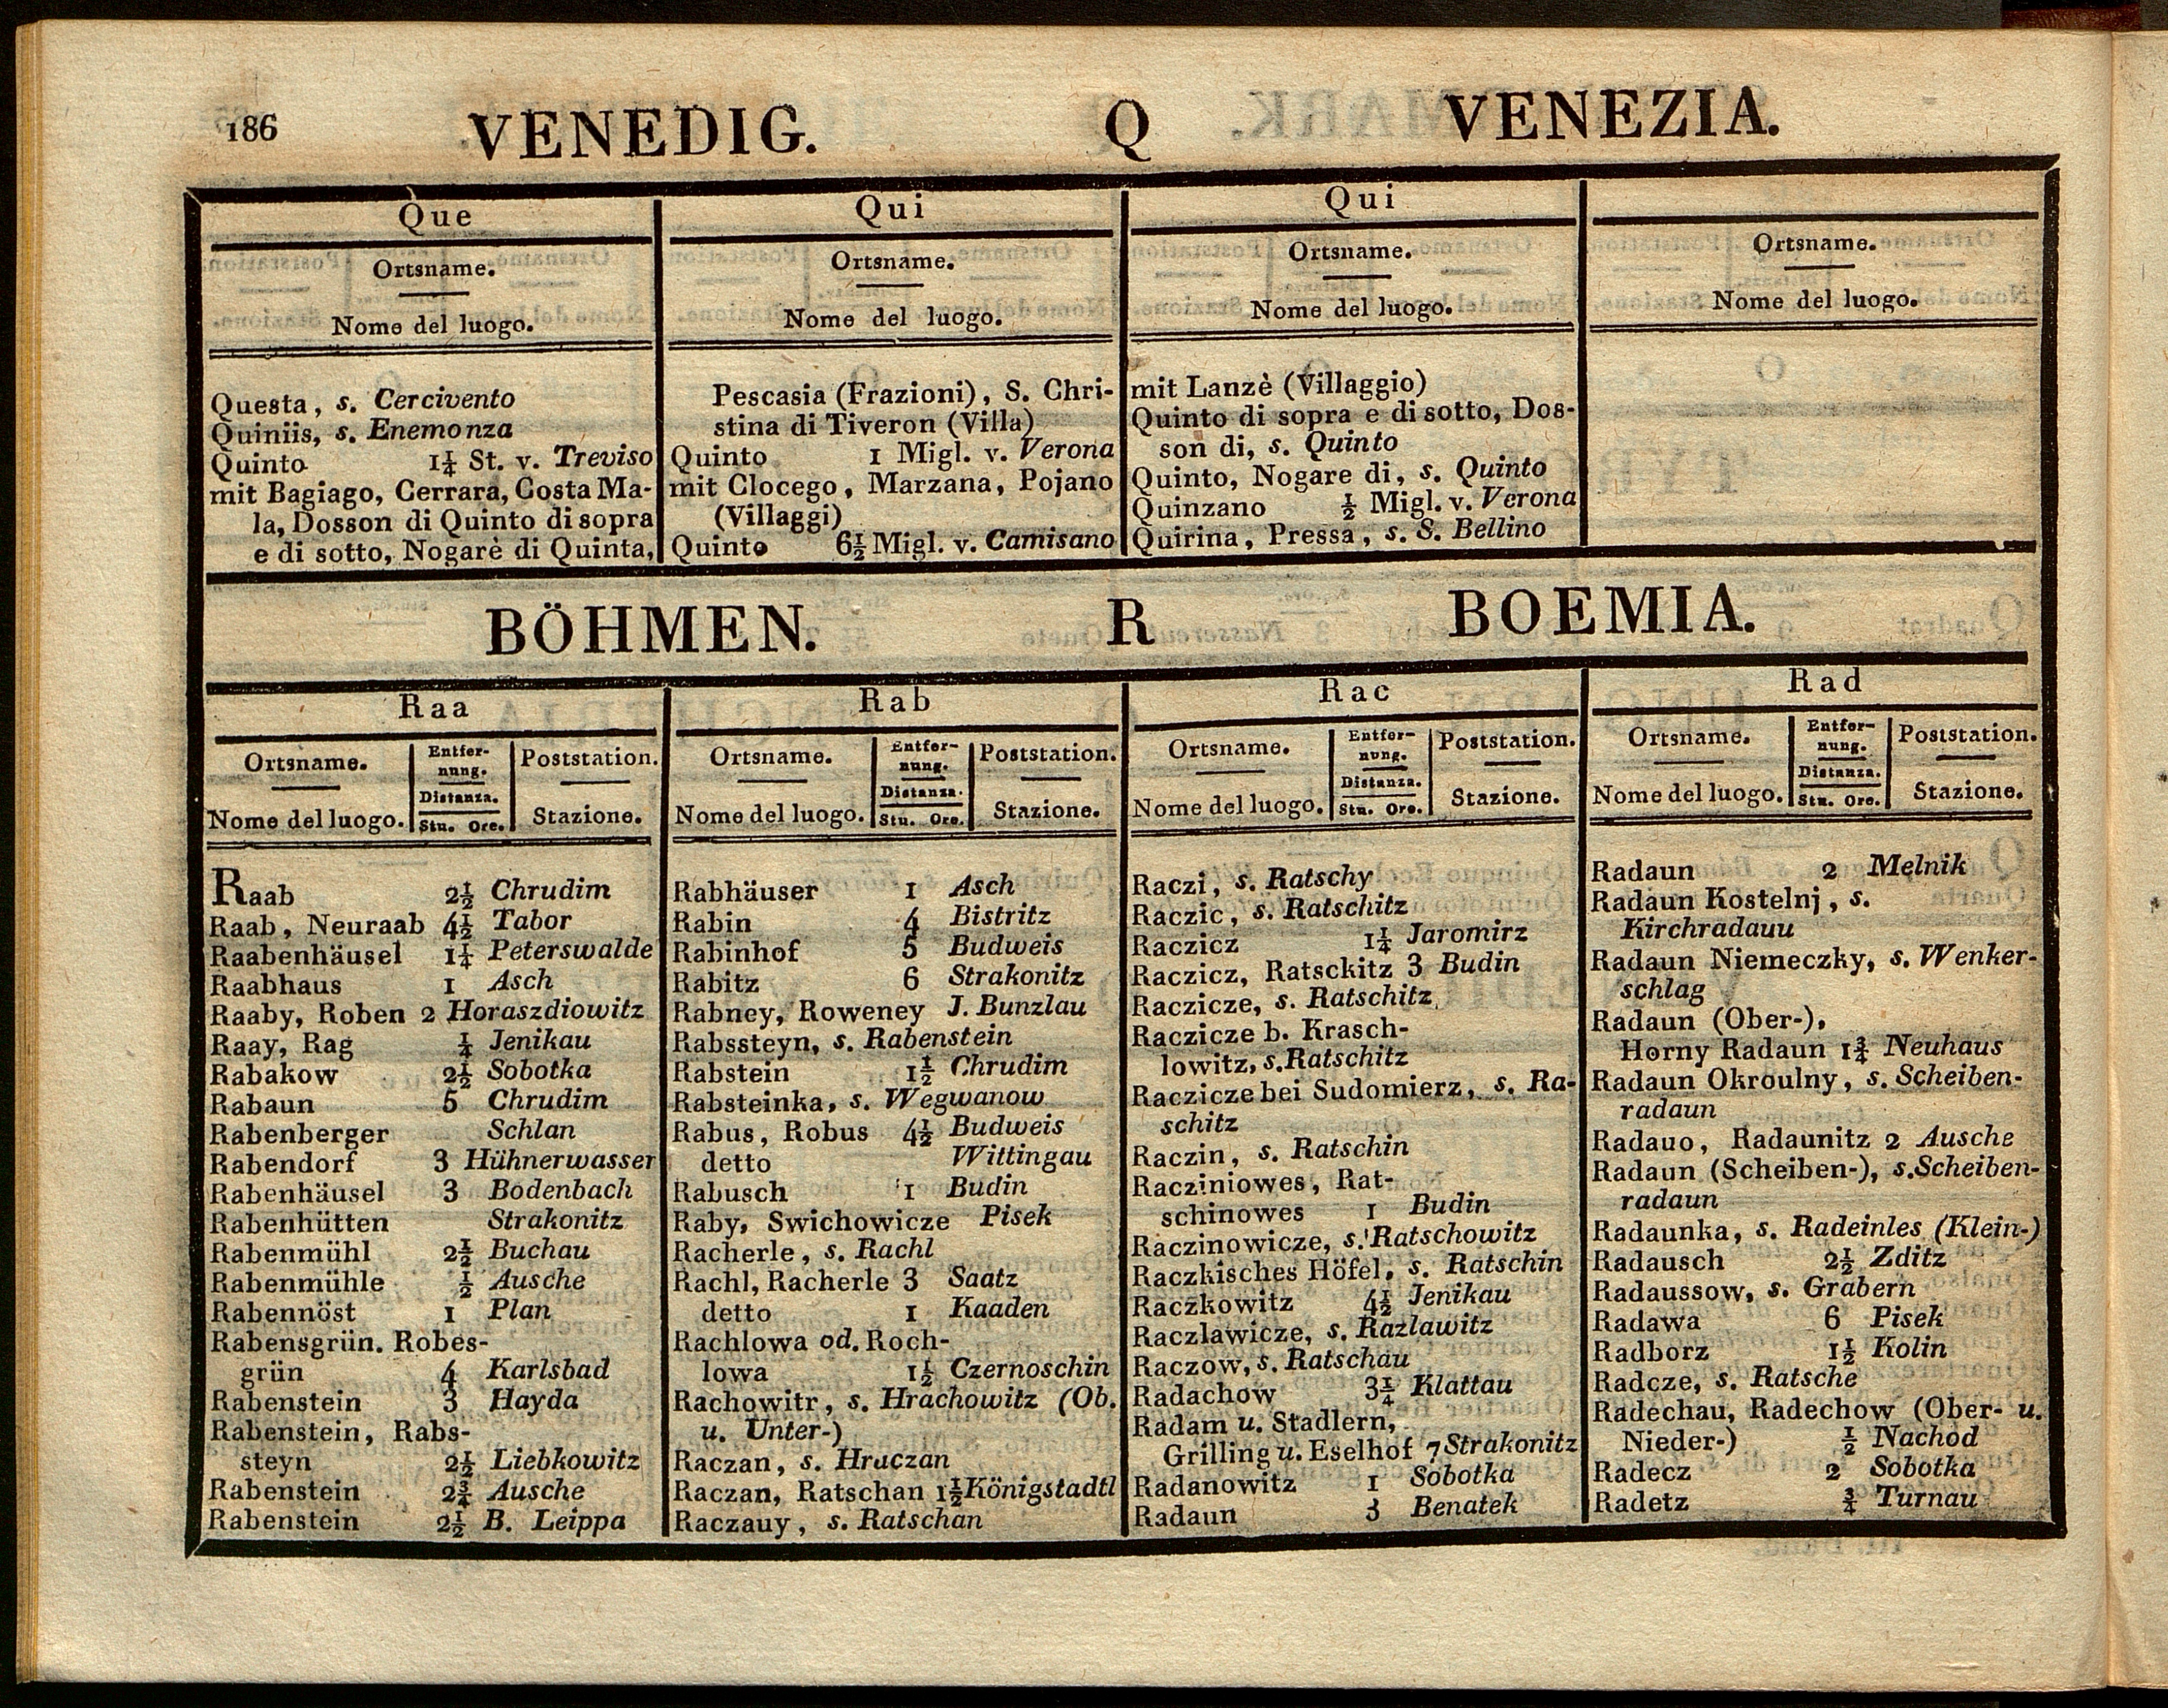 186 VENEDIG. Q VENEZIA.
Que
Ortsname.
Nome del luogo.
Questa, s. Cercivento
Quiniis, s. Enemonza
Quinto 1¼ St. v. Treviso
mit Bagiago, Cerrara, Costa Ma-
la, Dosson di Quinto di sopra
e di sotto, Nogarè di Quinta,
Qui
Ortsname.
Nome del luogo.
Pescasia (Frazioni), S. Chri-
stina di Tiveron (Villa)
Quinto 1 Migl. v. Verona
mit Clocego, Marzana, Pojano
(Villaggi)
Quinto 6½ Migl. v. Camisano
Qui
Ortsname.
Nome del luogo.
mit Lanzè (Villaggio)
Quinto di sopra e di sotto, Dos-
son di, s. Quinto
Quinto, Nogare di, s. Quinto
Quinzano ½ Migl. v. Verona
Quirina, Pressa, s. S. Bellino
Ortsname.
Nome del luogo.
BÖHMEN. R BOEMIA.
Raa
Ortsname. Entfer- Poststation.
nung.
Distanza.
Nome del luogo. Stu. Ore. Stazione.
Raab 2½ Chrudim
Raab, Neuraab 4½ Tabor
Raabenhäusel 1¼ Peterswalde
Raabhaus 1 Asch
Raaby, Roben 2 Horaszdiowitz
Raay, Rag ¼ Jenikau
Rabakow 2½ Sobotka
Rabaun 5 Chrudim
Rabenberger Schlan
Rabendorf 3 Hühnerwasser
Rabenhäusel 3 Bodenbach
Rabenhütten Strakonitz
Rabenmühl 2½ Buchau
Rabenmühle ½ Ausche
Rabennöst 1 Plan
Rabensgrün. Robes-
grün 4 Karlsbad
Rabenstein 3 Hayda
Rabenstein, Rabs-
steyn 2½ Liebkowitz
Rabenstein 2¾ Ausche
Rabenstein 2½ B. Leippa
Rab
Ortsname. Entfer- Poststation.
nung.
Distanza.
Nome del luogo. Stu. Ore. Stazione.
Rabhäuser 1 Asch
Rabin 4 Bistritz
Rabinhof 5 Budweis
Rabitz 6 Strakonitz
Rabney, Roweney J. Bunzlau
Rabssteyn, s. Rabenstein
Rabstein 1½ Chrudim
Rabsteinka, s. Wegwanow
Rabus, Robus 4½ Budweis
detto Wittingau
Rabusch 1 Budin
Raby, Swichowicze Pisek
Racherle, s. Rachl
Rachl, Racherle 3 Saatz
detto 1 Kaaden
Rachlowa od. Roch-
lowa 1½ Czernoschin
Rachowitr, s. Hrachowitz (Ob.
u. Unter-)
Raczan, s. Hraczan
Raczan, Ratschan 1½ Königstadtl
Raczauy, s. Ratschan
Rac
Ortsname. Entfer- Poststation.
nung.
Distanza.
Nome del luogo. Stu. Ore. Stazione.
Raczi, s. Ratschy
Raczic, s. Ratschitz
Raczicz 1¼ Jaromirz
Raczicz, Ratsckitz 3 Budin
Raczicze, s. Ratschitz
Raczicze b. Krasch-
lowitz, s. Ratschitz
Raczicze bei Sudomierz, s. Ra-
schitz
Raczin, s. Ratschin
Racziniowes, Rat-
schinowes 1 Budin
Raczinowicze, s. Ratschowitz
Raczkisches Höfel, s. Ratschin
Raczkowitz 4½ Jenikau
Raczlawicze, s. Razlawitz
Raczow, s. Ratschau
Radachow 3¼ Klattau
Radam u. Stadlern,
Grilling u. Eselhof 7 Strakonitz
Radanowitz 1 Sobotka
Radaun 3 Benatek
Rad
Ortsname. Entfer- Poststation.
nung.
Distanza.
Nome del luogo. Stu. Ore. Stazione.
Radaun 2 Melnik
Radaun Kostelnj, s.
Kirchradauu
Radaun Niemeczky, s. Wenker-
schlag
Radaun (Ober-),
Horny Radaun 1¾ Neuhaus
Radaun Okroulny, s. Scheiben-
radaun
Radauo, Radaunitz 2 Ausche
Radaun (Scheiben-), s. Scheiben-
radaun
Radaunka, s. Radeinles (Klein-)
Radausch 2½ Zditz
Radaussow, s. Grabern
Radawa 6 Pisek
Radborz 1½ Kolin
Radcze, s. Ratsche
Radechau, Radechow (Ober- u.
Nieder-) ½ Nachod
Radecz 2 Sobotka
Radetz ¾ Turnau